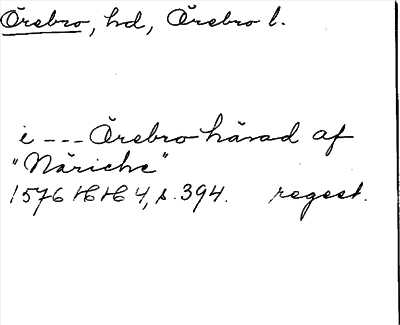 Örebro, hd, Örebro l.
i --- Örebro härad af
"Näriche"
1576 HH 4, s. 394. regest.